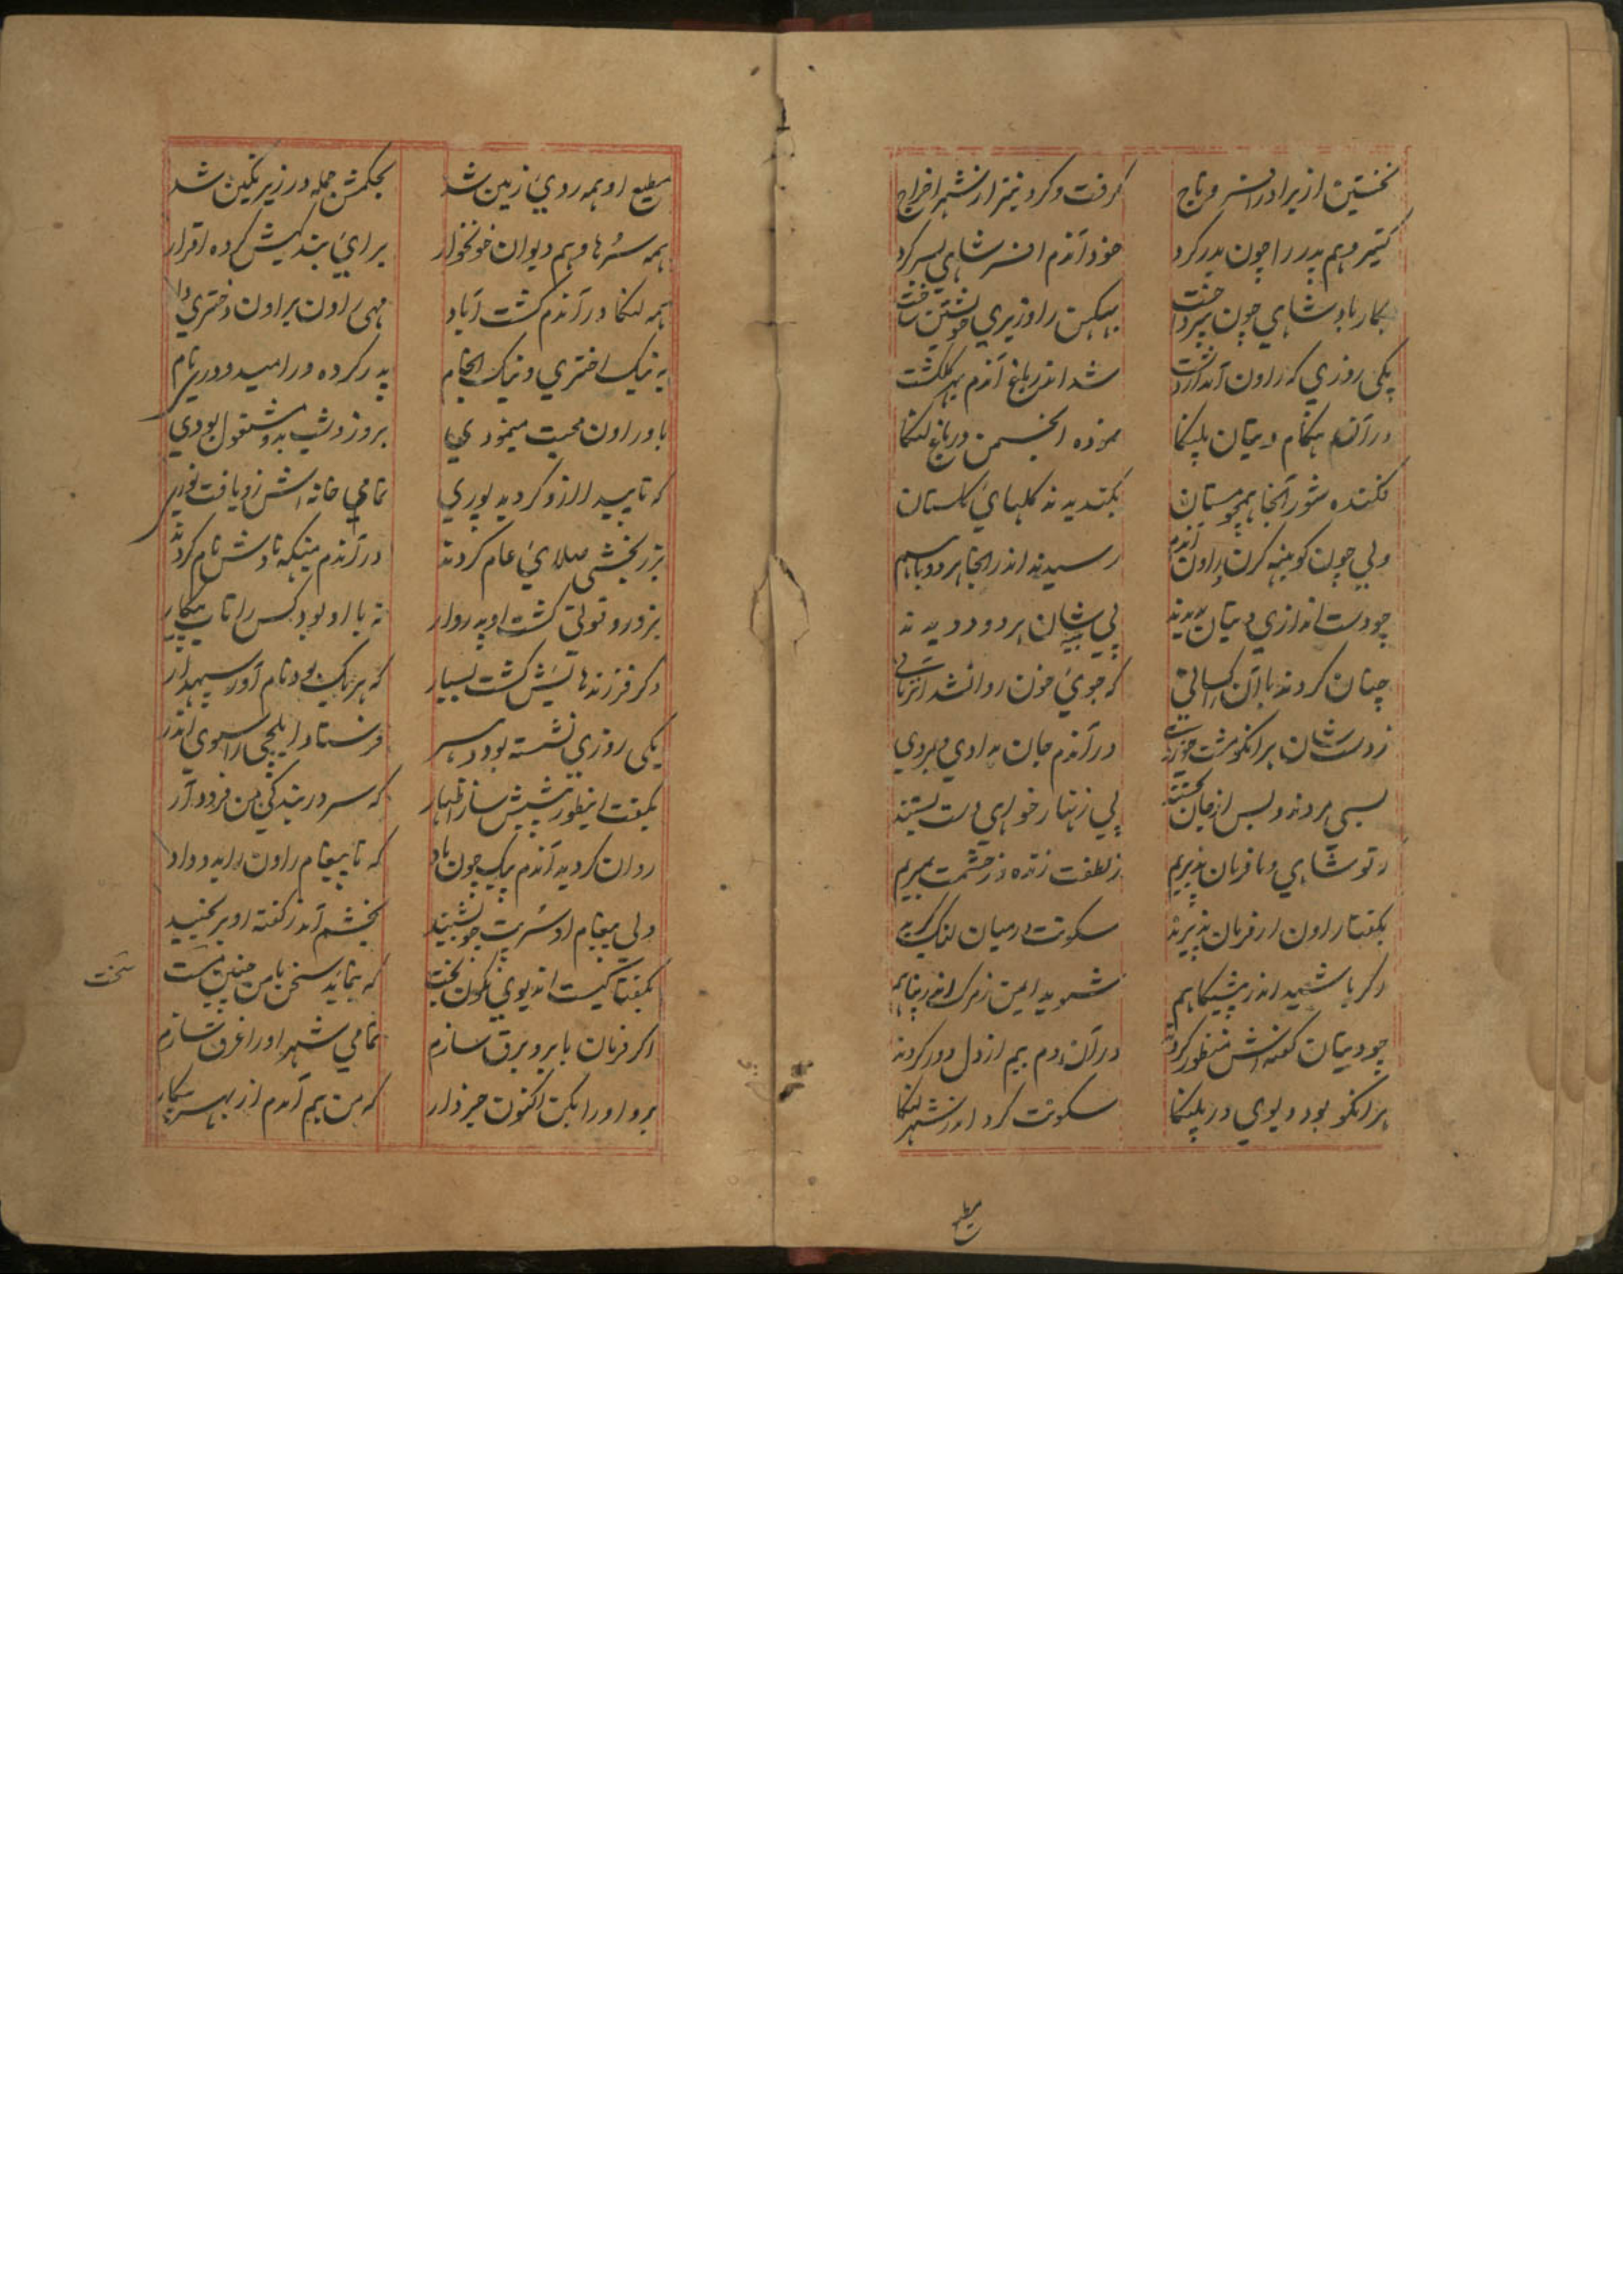 نخستین از برادر افسر و تاج گرفت و کرد نیز از شهر اخراج
کبیر و هم پدر را چون بدر کرد خود آندم افسر شاهی بسر کرد
بکار پادشاهی چون بپرداخت ببیکهن را وزیری خویشتن ساخت
یکی روزی که راون آمد از دشت شد اندر باغ آندم بهر گلگشت
در آن هنگام دیتان پلنکا نموده انجمن در باغ لنکا
فکنده شور آنجا همچو مستان بکندیدند کلهای کلستان
ولی چون کوبنهه کرن راون آندم رسیدند اندر آنجا هر دو باهم
چو دست اندازی دیتان بدیدند پی شان هر دو دویدند
چنان کردند با آن که جوی خون روان شد
ز دست شان در آندم جان بدادی
بسی مردند و بس از جان پی زنهار خواهی دست بستند
تو شاهی و ما فرمان پذیریم ز لطفت زنده و ز خشمت بمیریم
بگفتا راون ار فرمان پذیرند سکونت در میان لنک گیرند
اگر باشید اندر پیشگاهم شوید ایمن ز مرگ اندر پناهم
چو دیتان گفته اش منظور کردند در آن دم بیم از دل دور کردند
بر انکو بود دیوی در پلنکا سکونت کرد اندر شهر لنکا
مطیع
مطیع او همه روی زمین شد بحکمش جمله در زیر نگین شد
همه سرها و هم دیوان خونخوار برای بندگیش کرده اقرار
همه لنکا در آندم گشت آباد مهی راون براون دختری داد
به نیک اختری و نیک انجام پدر کرده ورا میدودری نام
باو راون محبت مینمودی بروز و شب بدو مشغول بودی
که تا پیدا ازو گردید پوری تمامی خانه اش زو یافت نوری
بزر بخشی صلای عام کردند در آندم میکهه نادش نام کردند
بزور و قوتی گشت او پدروار نه با او بود کس را تاب پیکار
دگر فرزندهایش گشت بسیار که هر یک بود نام آور سپهدار
یکی روزی نشسته بود بر سر فرستاد ایلچی را سوی اندر
بگفت اینطور پیشش ساز اظهار که سر در بندگی من فرود آر
روان گردید آندم پیک چون باد که تا پیغام راون را بدو داد
ولی پیغام او سرپت چو بشنید بخشم آمد ز گفته او برنجید
بگفتا کیست اندیوی نگون بخت که بنماید سخن با من چنین پست
سخت
اگر فرمان بابر و برق سازم تمامی شهر او را غرق سازم
برو او را بکن اکنون خبردار که من هم آمدم از بهر پیکار